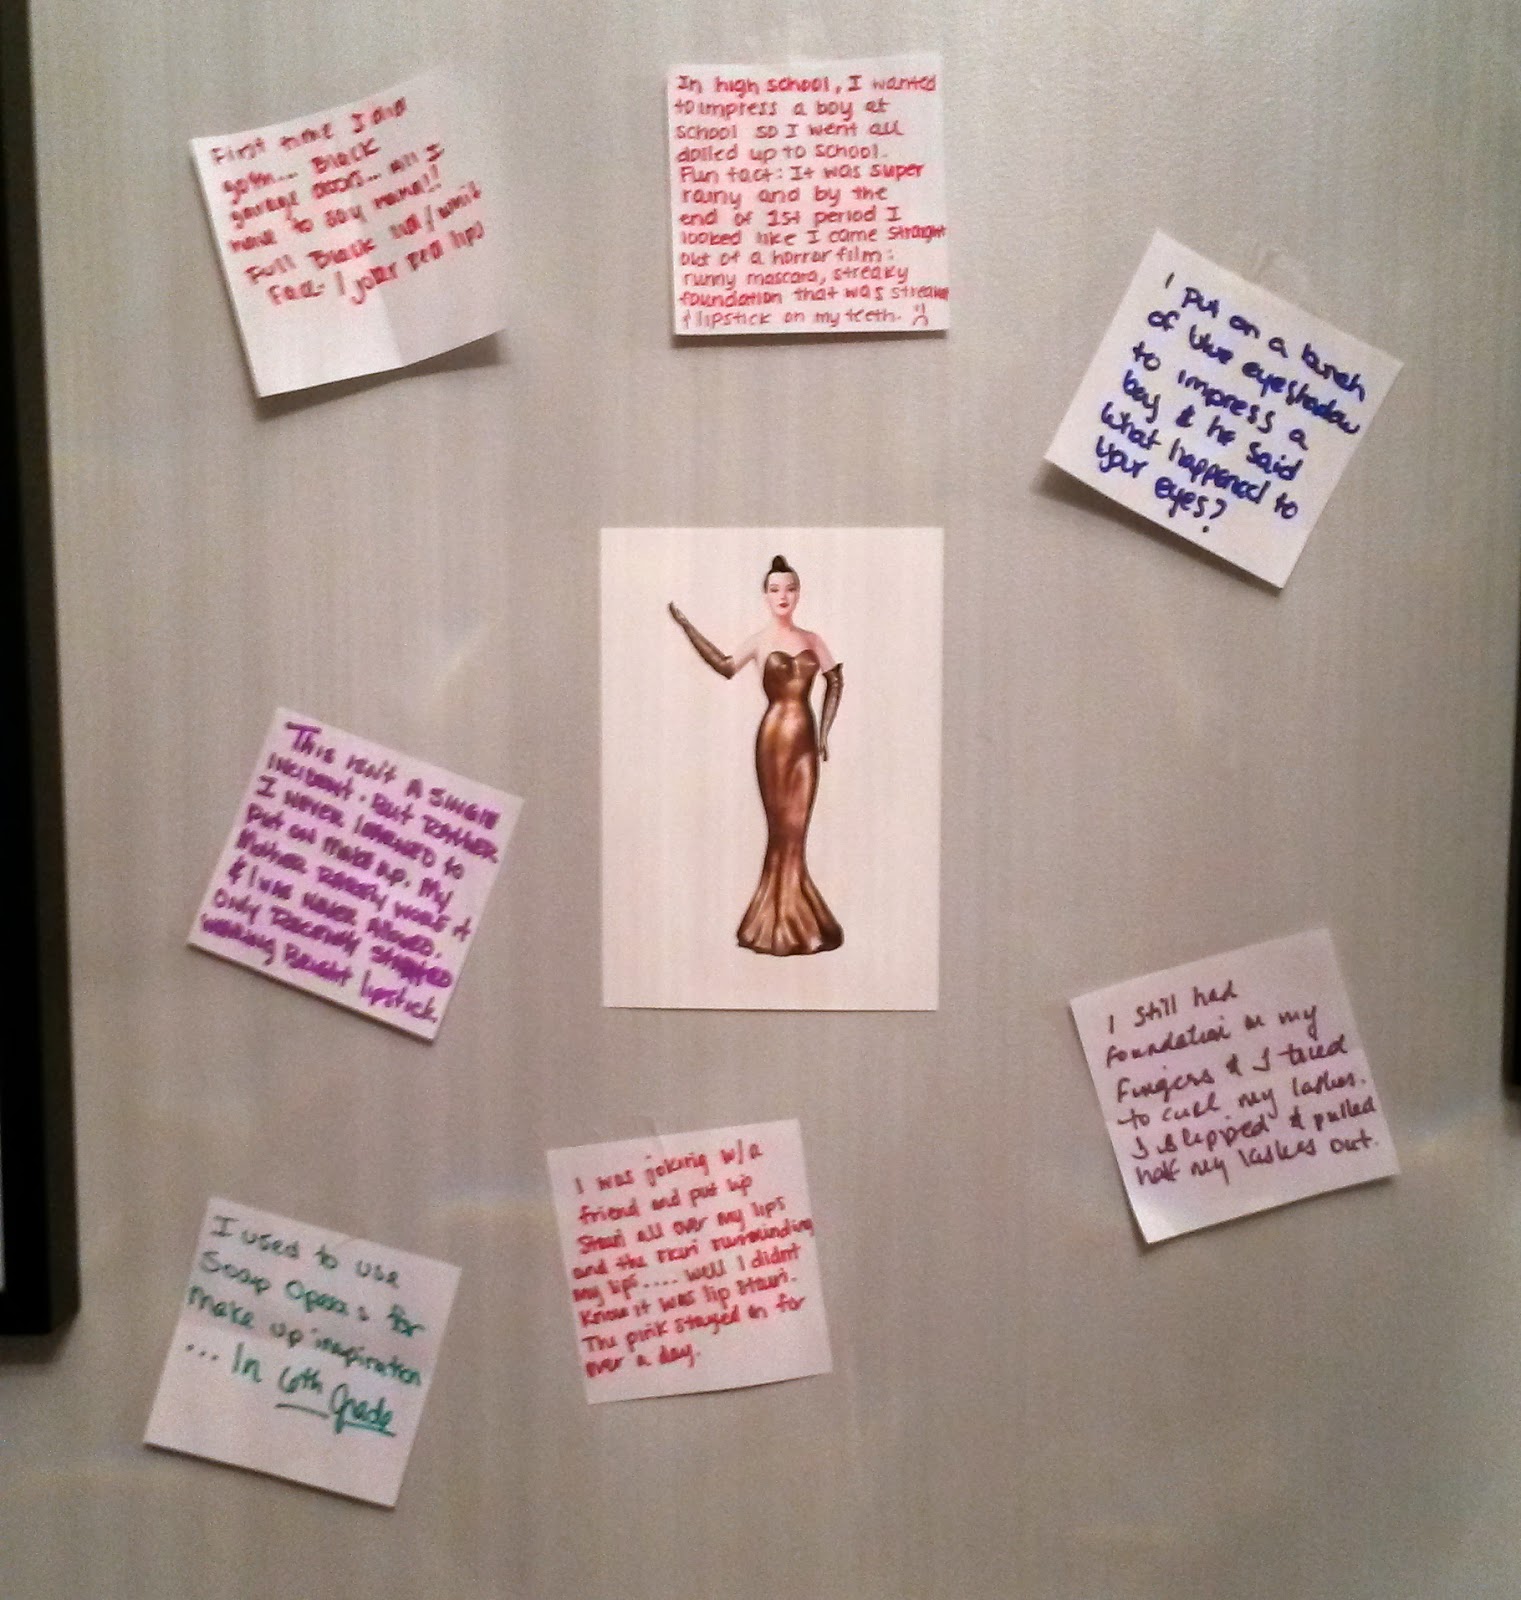 First time I did
goth... Black
garage doors... all I
have to say mama!!
Full Black lid / white
Face / joker red lips
In high school, I wanted
to impress a boy at
school so I went all
dolled up to school.
Fun fact: It was super
rainy and by the
end of 1st period I
looked like I came straight
out of a horror film:
runny mascara, streaky
foundation that was streaky
& lipstick on my teeth.
I put on a bunch
of blue eyeshadow
to impress a
boy & he said
what happened to
your eyes?
This isn't a single
incident. But rather
I never learned to
put on make up. My
Mother rarely wore it
& I was never allowed.
Only recently started
wearing bright lipstick.
I still had
foundation on my
fingers & I tried
to curl my lashes.
I slipped & pulled
half my lashes out.
I was joking w/a
friend and put lip
stain all over my lips
and the skin surrounding
my lips.... well I didnt
know it was lip stain.
The pink stayed on for
over a day.
I used to use
Soap Operas for
make up inspiration
... In 6th Grade